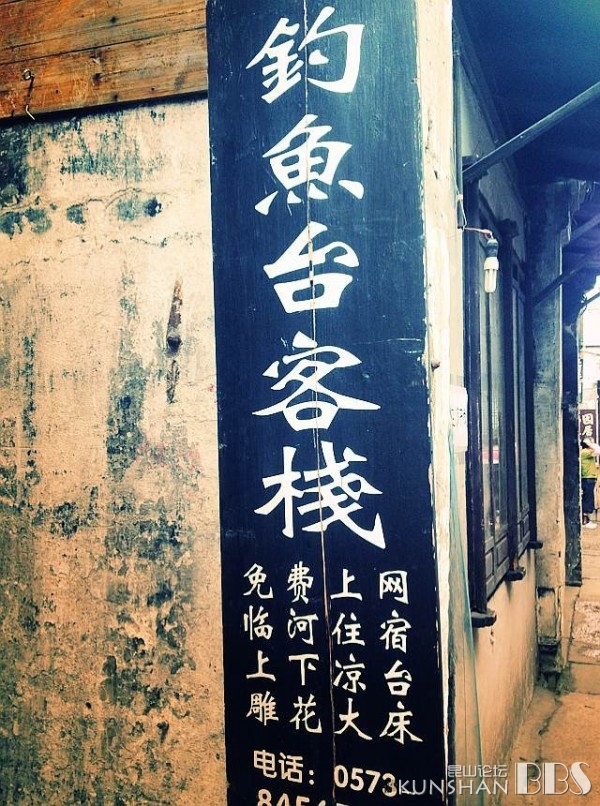 釣魚台客棧
免费上网
临河住宿
上下凉台
雕花大床
电话：0573
昆山论坛
KUNSHAN BBS